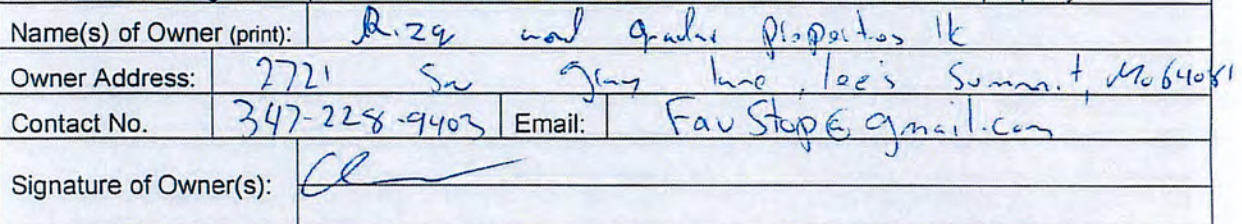 Name(s) of Owner (print): Rizq and Properties llc
Owner Address: 2721 SW Gray lane, lee's Summit, Mo 64081
Contact No. 347-228-9403 Email: FavStop@gmail.com
Signature of Owner(s):